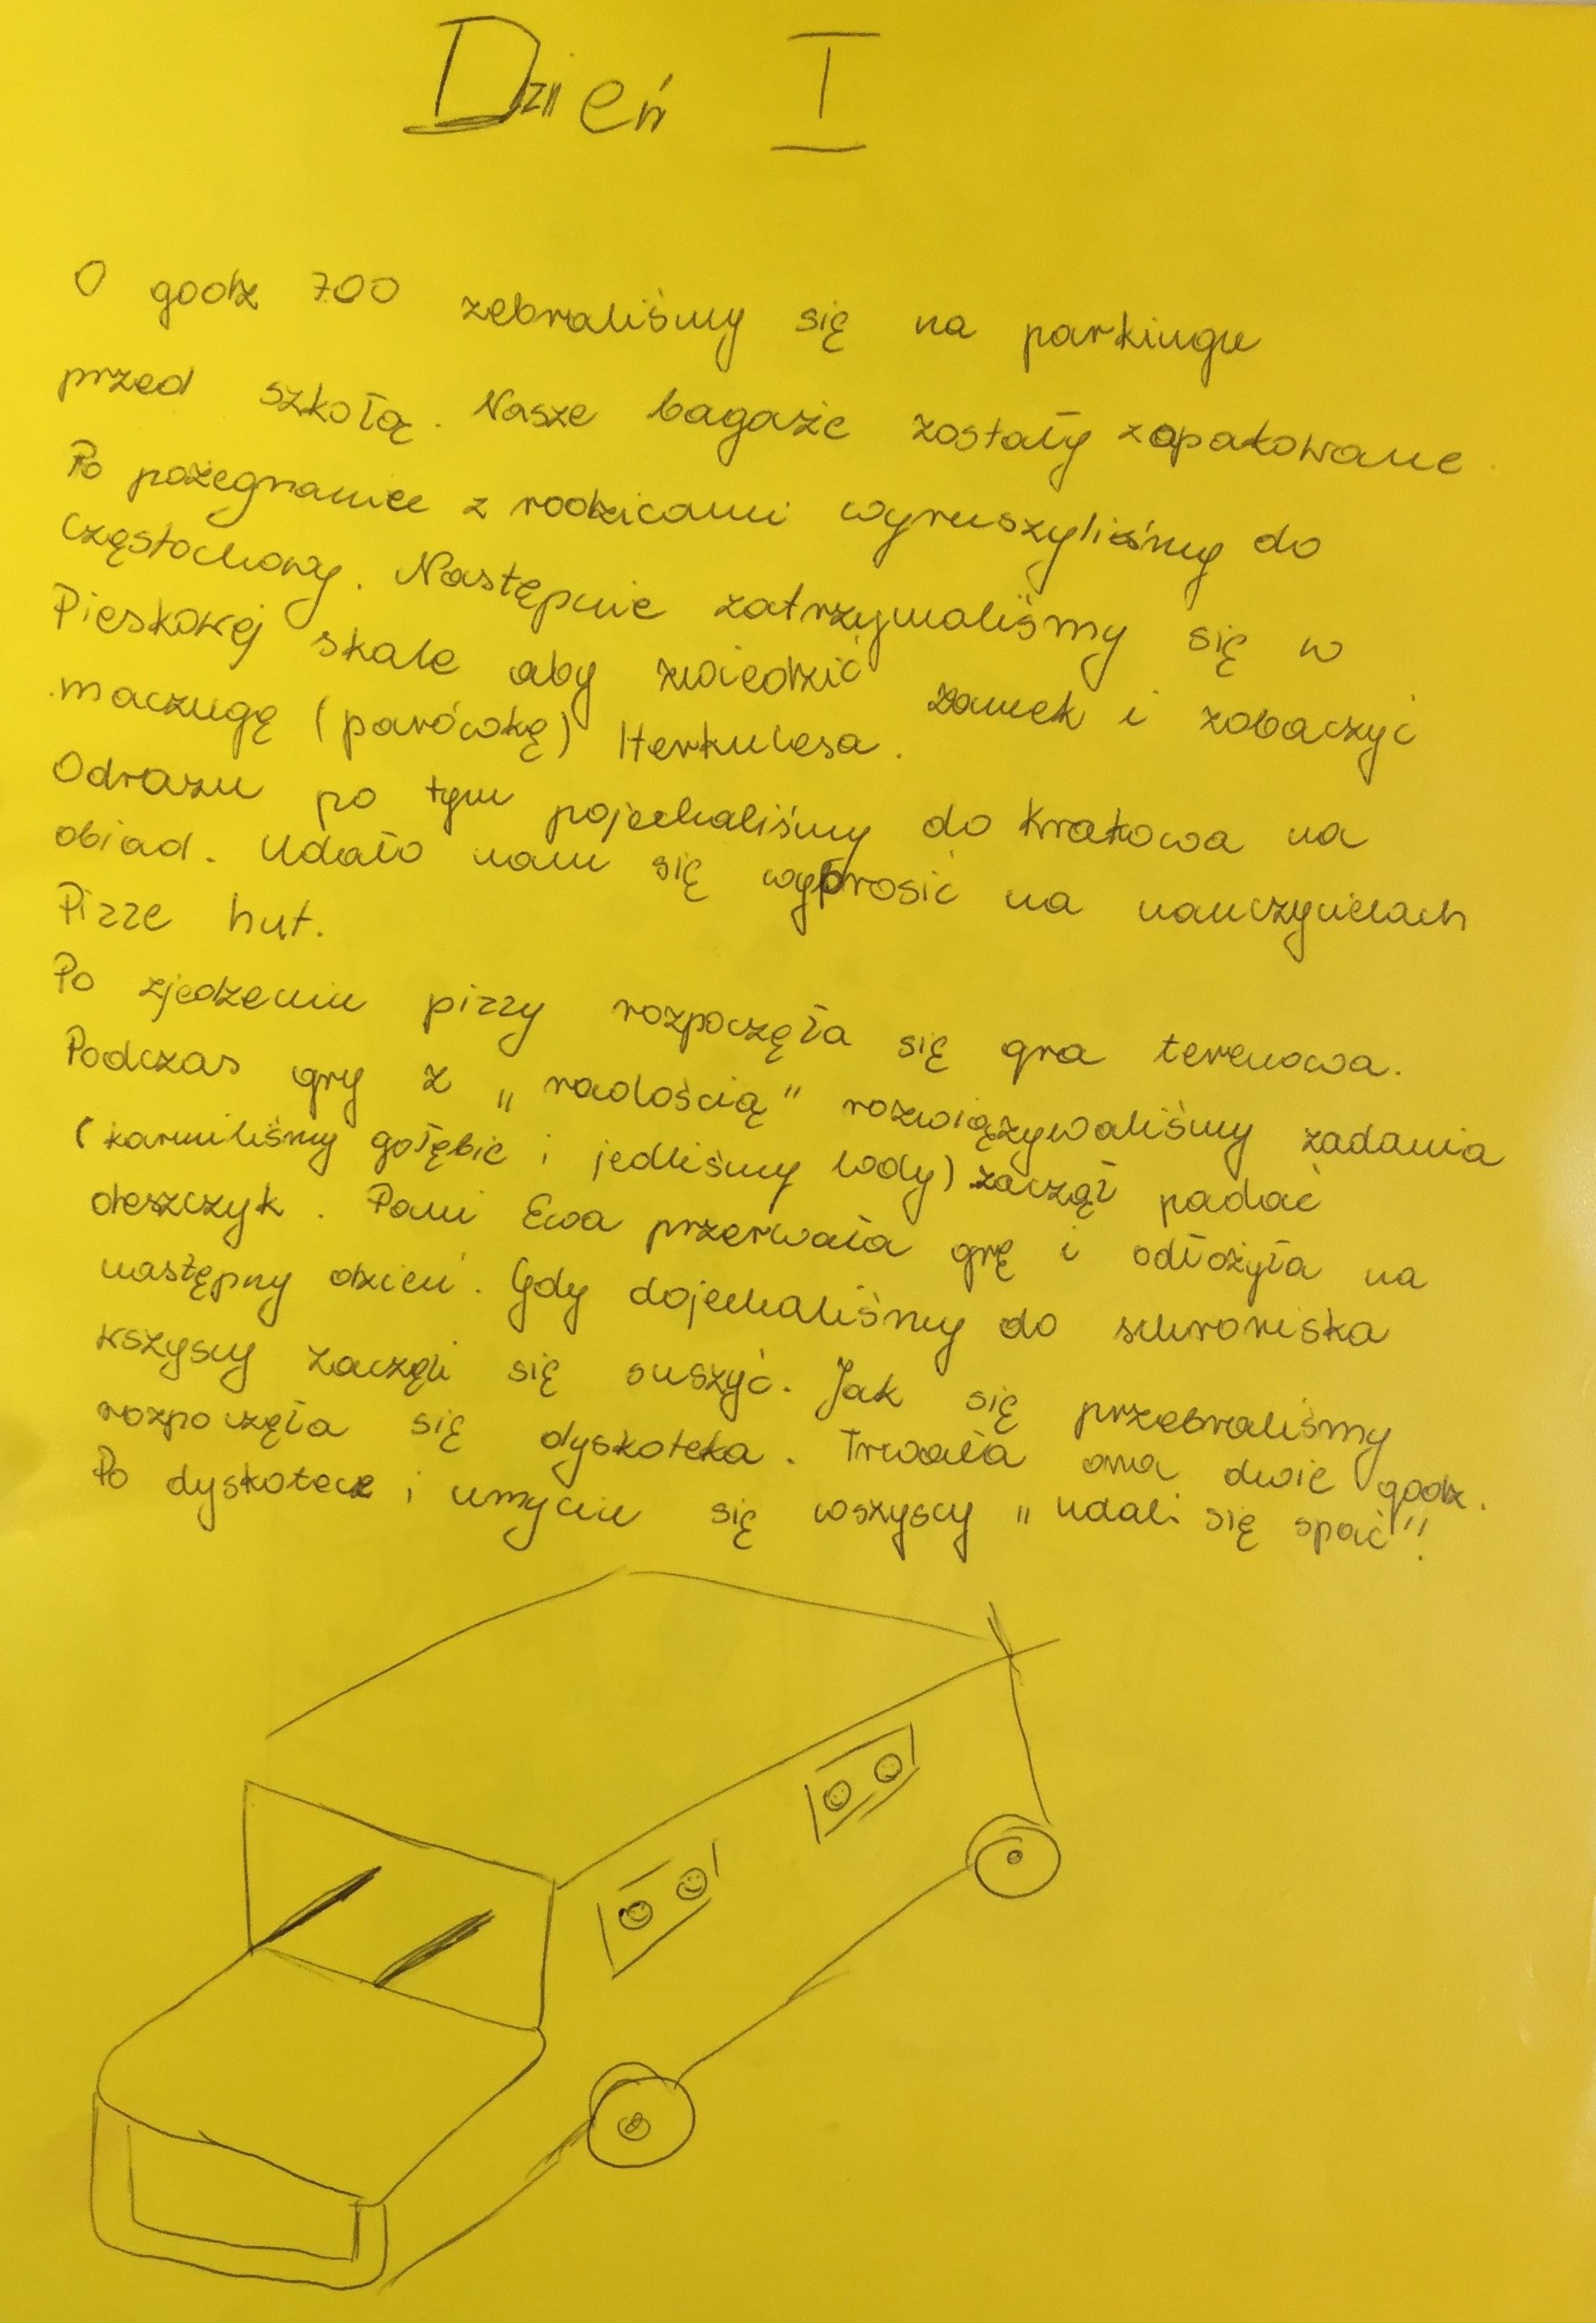 Dzień I
O godz 700 zebraliśmy się na parkingu
przed szkołą. Nasze bagaże zostały zapakowane
Po pożegnaniu z rodzicami wyruszyliśmy do
Częstochowy. Następnie zatrzymaliśmy się w
Pieskowej skale aby zwiedzić zamek i zobaczyć
maczugę (parówkę) Herkulesa.
Odrazu po tym pojechaliśmy do Krakowa na
obiad. Udało nam się wyprosić na nauczycielach
Pizze hut.
Po zjedzeniu pizzy rozpoczęła się gra terenowa.
Podczas gry z "radością" rozwiązywaliśmy zadania
(karmiliśmy gołębie i jedliśmy lody) zaczął padać
deszczyk. Pani Ewa przerwała grę i odłożyła na
następny dzień. Gdy dojechaliśmy do schroniska
wszyscy zaczęli się suszyć. Jak się przebraliśmy
rozpoczęła się dyskoteka. Trwała ona dwie godz.
Po dyskotece i umyciu się wszyscy "udali się spać"!